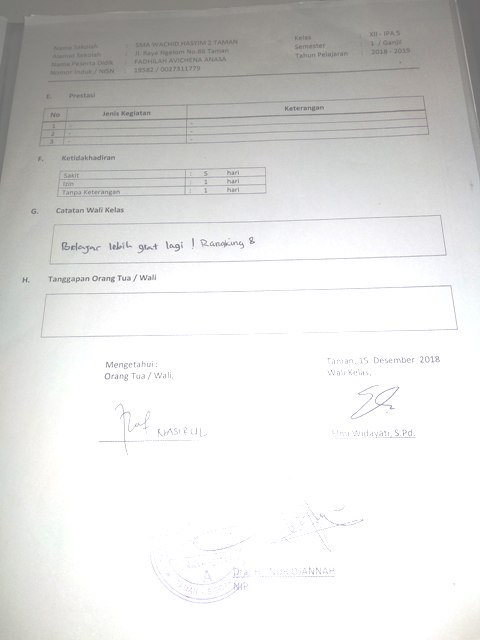 Nama Sekolah : SMA WACHID HASYIM 2 TAMAN
Alamat Sekolah : Jl. Raya Ngelom No.86 Taman
Nama Peserta Didik : FADHILAH AVICHENA ANASA
Nomor Induk / NISN : 19582 / 0027311779
Kelas : XII - IPA.5
Semester : 1 / Ganjil
Tahun Pelajaran : 2018 - 2019
E. Prestasi
No Jenis Kegiatan Keterangan
1 - -
2 - -
3 - -
F. Ketidakhadiran
Sakit : 5 hari
Izin : 1 hari
Tanpa Keterangan : 1 hari
G. Catatan Wali Kelas
Belajar lebih giat lagi ! Rangking 8
H. Tanggapan Orang Tua / Wali
Mengetahui :
Orang Tua / Wali,
NASIRUL
Taman, 15 Desember 2018
Wali Kelas,
Widayati, S.Pd.
A
NIP